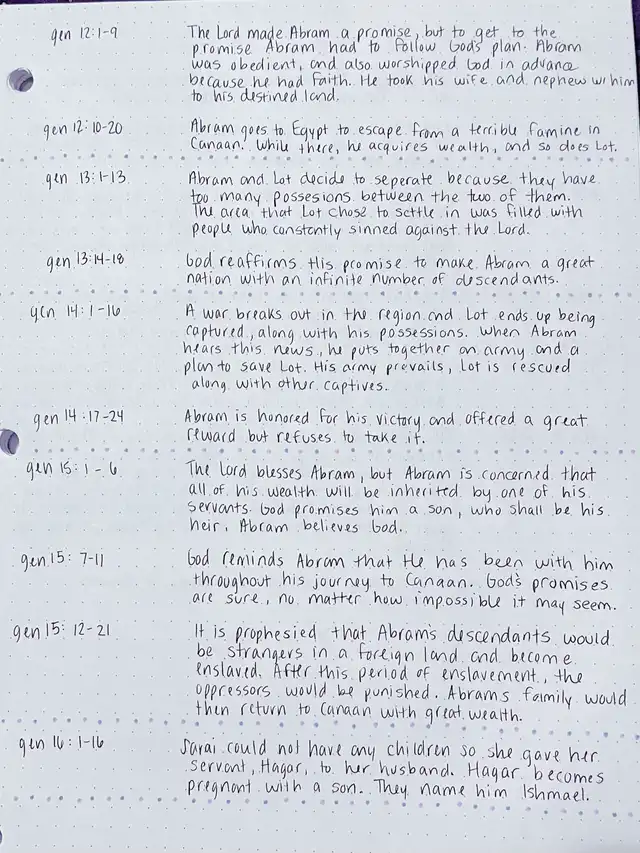 gen 12:1-9
The Lord made Abram a promise, but to get to the
promise Abram had to follow God's plan. Abram
was obedient, and also worshipped God in advance
because he had faith. He took his wife and nephew w/him
to his destined land.
gen 12:10-20
Abram goes to Egypt to escape from a terrible famine in
Canaan. While there, he acquires wealth, and so does Lot.
gen 13:1-13
Abram and Lot decide to seperate because they have
too many possesions between the two of them.
The area that Lot chose to settle in was filled with
people who constantly sinned against the Lord.
gen 13:14-18
God reaffirms His promise to make Abram a great
nation with an infinite number of descendants.
gen 14:1-16
A war breaks out in the region and Lot ends up being
captured, along with his possessions. When Abram
hears this news, he puts together an army and a
plan to save Lot. His army prevails, Lot is rescued
along with other captives.
gen 14:17-24
Abram is honored for his victory and offered a great
reward but refuses to take it.
gen 15:1-6
The Lord blesses Abram, but Abram is concerned that
all of his wealth will be inherited by one of his
servants. God promises him a son, who shall be his
heir. Abram believes God.
gen 15:7-11
God reminds Abram that He has been with him
throughout his journey to Canaan. God's promises
are sure, no matter how impossible it may seem.
gen 15:12-21
It is prophesied that Abram's descendants would
be strangers in a foreign land and become
enslaved. After this period of enslavement, the
oppressors would be punished. Abrams family would
then return to Canaan with great wealth.
gen 16:1-16
Sarai could not have any children so she gave her
servant, Hagar, to her husband. Hagar becomes
pregnant with a son. They name him Ishmael.